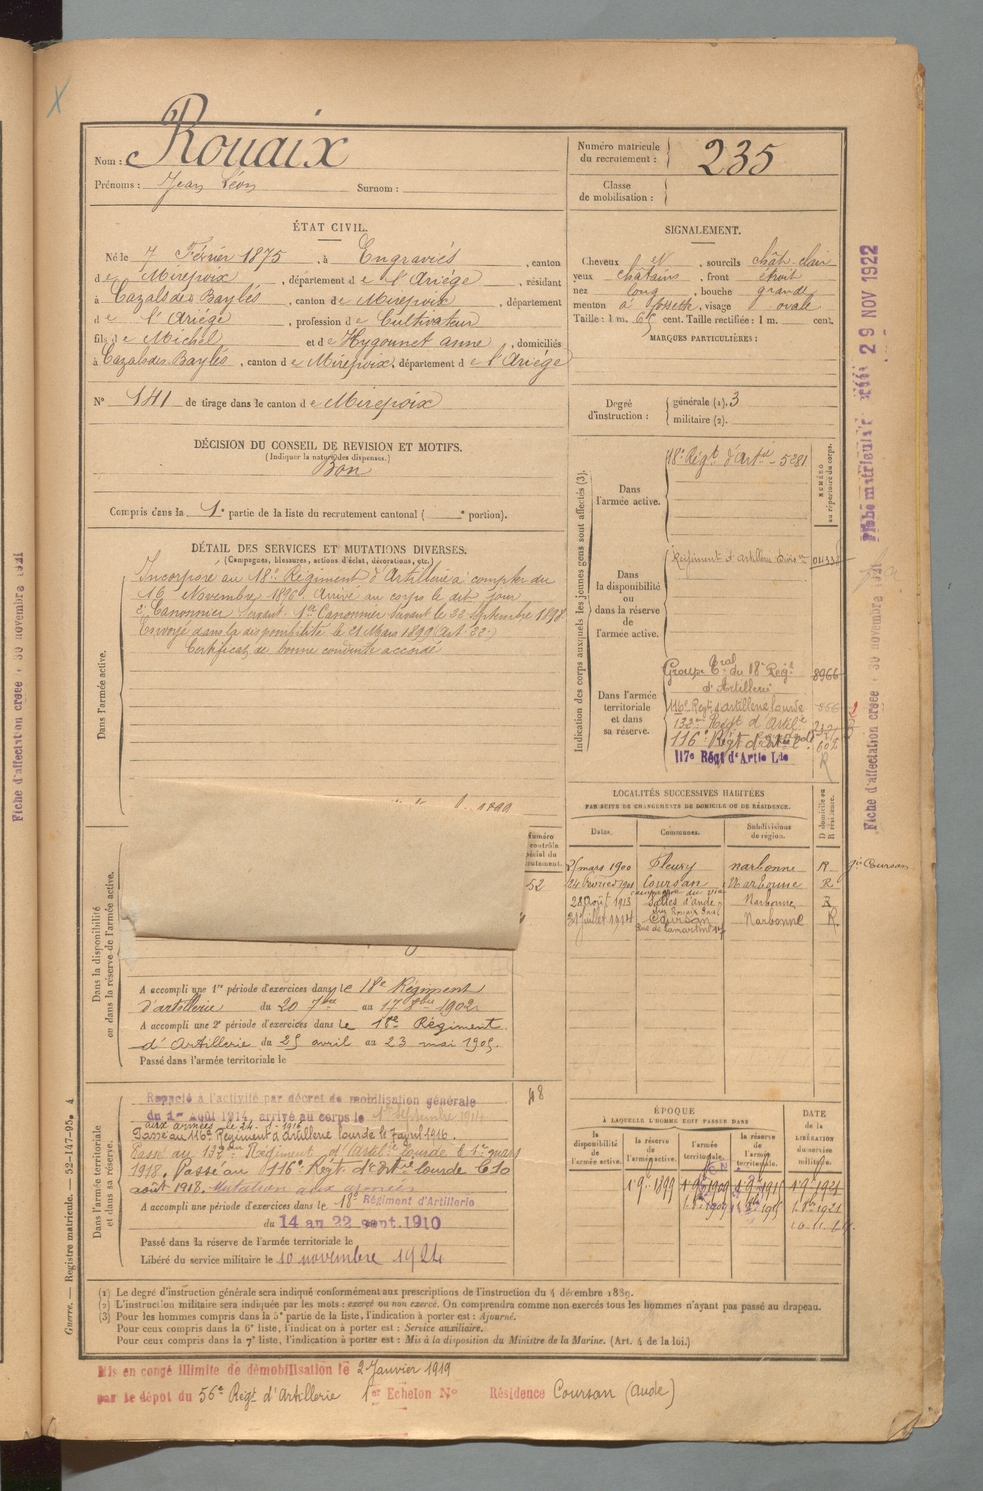 Nom : Rouaix
Prénoms : Jean Léon Surnom :
Numéro matricule du recrutement : 235
Classe de mobilisation :
ÉTAT CIVIL.
Né le 7 Février 1875, à Engraviès, canton
de Mirepoix, département de l'Ariège, résidant
à Cazals des Baylès, canton de Mirepoix, département
de l'Ariège, profession de Cultivateur
fils de Michel et de Hygounet anne, domiciliés
à Cazals des Baylès, canton de Mirepoix, département de l'Ariège
N° 141 de tirage dans le canton de Mirepoix
SIGNALEMENT.
Cheveux , sourcils chât-clair
yeux châtains, front étroit
nez long, bouche grande
menton à fossette, visage ovale
Taille : 1 m. 65 cent. Taille rectifiée : 1 m. cent.
MARQUES PARTICULIÈRES :
Degré d'instruction :
générale (1). 3
militaire (2).
DÉCISION DU CONSEIL DE REVISION ET MOTIFS.
(Indiquer la nature des dispenses.)
Bon
Compris dans la 1e partie de la liste du recrutement cantonal ( e portion).
DÉTAIL DES SERVICES ET MUTATIONS DIVERSES.
(Campagnes, blessures, actions d'éclat, décorations, etc.)
Dans l'armée active.
Incorporé au 18e Régiment d'Artillerie à compter du
16 Novembre 1896. Arrivé au corps le dit jour
2e Canonnier servant. 1er Canonnier servant le 22 septembre 1898
Envoyé dans la disponibilité le 21 Mars 1899 (Art. 22.)
Certificat de bonne conduite accordé
1899
Dans la disponibilité ou dans la réserve de l'armée active.
52
A accompli une 1re période d'exercices dans le 18e Régiment
d'artillerie du 20 7bre au 17 8bre 1902
A accompli une 2e période d'exercices dans le 18e Régiment
d'Artillerie du 25 avril au 23 mai 1905.
Passé dans l'armée territoriale le
Dans l'armée territoriale et dans sa réserve.
48
Rappelé à l'activité par décret de mobilisation générale
du 1er Août 1914, arrivé au corps le 1er septembre 1914
aux armées le 24-1-1916
Passé au 116e Régiment d'Artillerie lourde le 7 avril 1916.
Passé au 132e Régiment d'Artie lourde le 1er mars
1918. Passé au 116e Régt d'Artie lourde le 10
août 1918. Mutation aux armées
A accompli une période d'exercices dans le 18e Régiment d'Artillerie
du 14 au 22 sept. 1910
Passé dans la réserve de l'armée territoriale le
Libéré du service militaire le 10 novembre 1924
Indication des corps auxquels les jeunes gens sont affectés (3).
NUMÉRO au répertoire du corps.
Dans l'armée active.
18e Régt d'Artie 5281
Dans la disponibilité ou dans la réserve de l'armée active.
Régiment d'Artillerie
Dans l'armée territoriale et dans sa réserve.
Groupe Tral du 18e Régt 8966
d'Artillerie
116e Regt d'artillerie lourde
132e Regt d'Artie
116e Régt d'Artie
117e Régt d'Artie Lde
R
LOCALITÉS SUCCESSIVES HABITÉES
PAR SUITE DE CHANGEMENTS DE DOMICILE OU DE RÉSIDENCE.
Dates. Communes. Subdivisions de région. D domicile ou R résidence.
25 mars 1900 Fleury narbonne R gie Coursan
24 février 1901 Coursan Narbonne R
28 août 1913 Salles d'aude Narbonne R
31 juillet 1914 Coursan Narbonne R
Rue de Lamartine
ÉPOQUE
À LAQUELLE L'HOMME DOIT PASSER DANS
la disponibilité de l'armée active.
la réserve de l'armée active.
l'armée territoriale.
la réserve de l'armée territoriale.
DATE de la LIBÉRATION du service militaire.
1 9bre 1899
(1) Le degré d'instruction générale sera indiqué conformément aux prescriptions de l'instruction du 4 décembre 1889.
(2) L'instruction militaire sera indiquée par les mots : exercé ou non exercé. On comprendra comme non exercés tous les hommes n'ayant pas passé au drapeau.
(3) Pour les hommes compris dans la 5e partie de la liste, l'indication à porter est : Ajourné.
Pour ceux compris dans la 6e liste, l'indication à porter est : Service auxiliaire.
Pour ceux compris dans la 7e liste, l'indication à porter est : Mis à la disposition du Ministre de la Marine. (Art. 4 de la loi.)
Mis en congé illimité de démobilisation le 2 Janvier 1919
par le dépôt du 56e Régt d'Artillerie 1er Echelon No Résidence Coursan (Aude)
Guerre. — Registre matricule. — 52-147-95. 4
Fiche d'affectation créée 30 novembre 1921
Fiche d'affectation créée 30 novembre 1921
Fiche matricule 29 NOV 1922